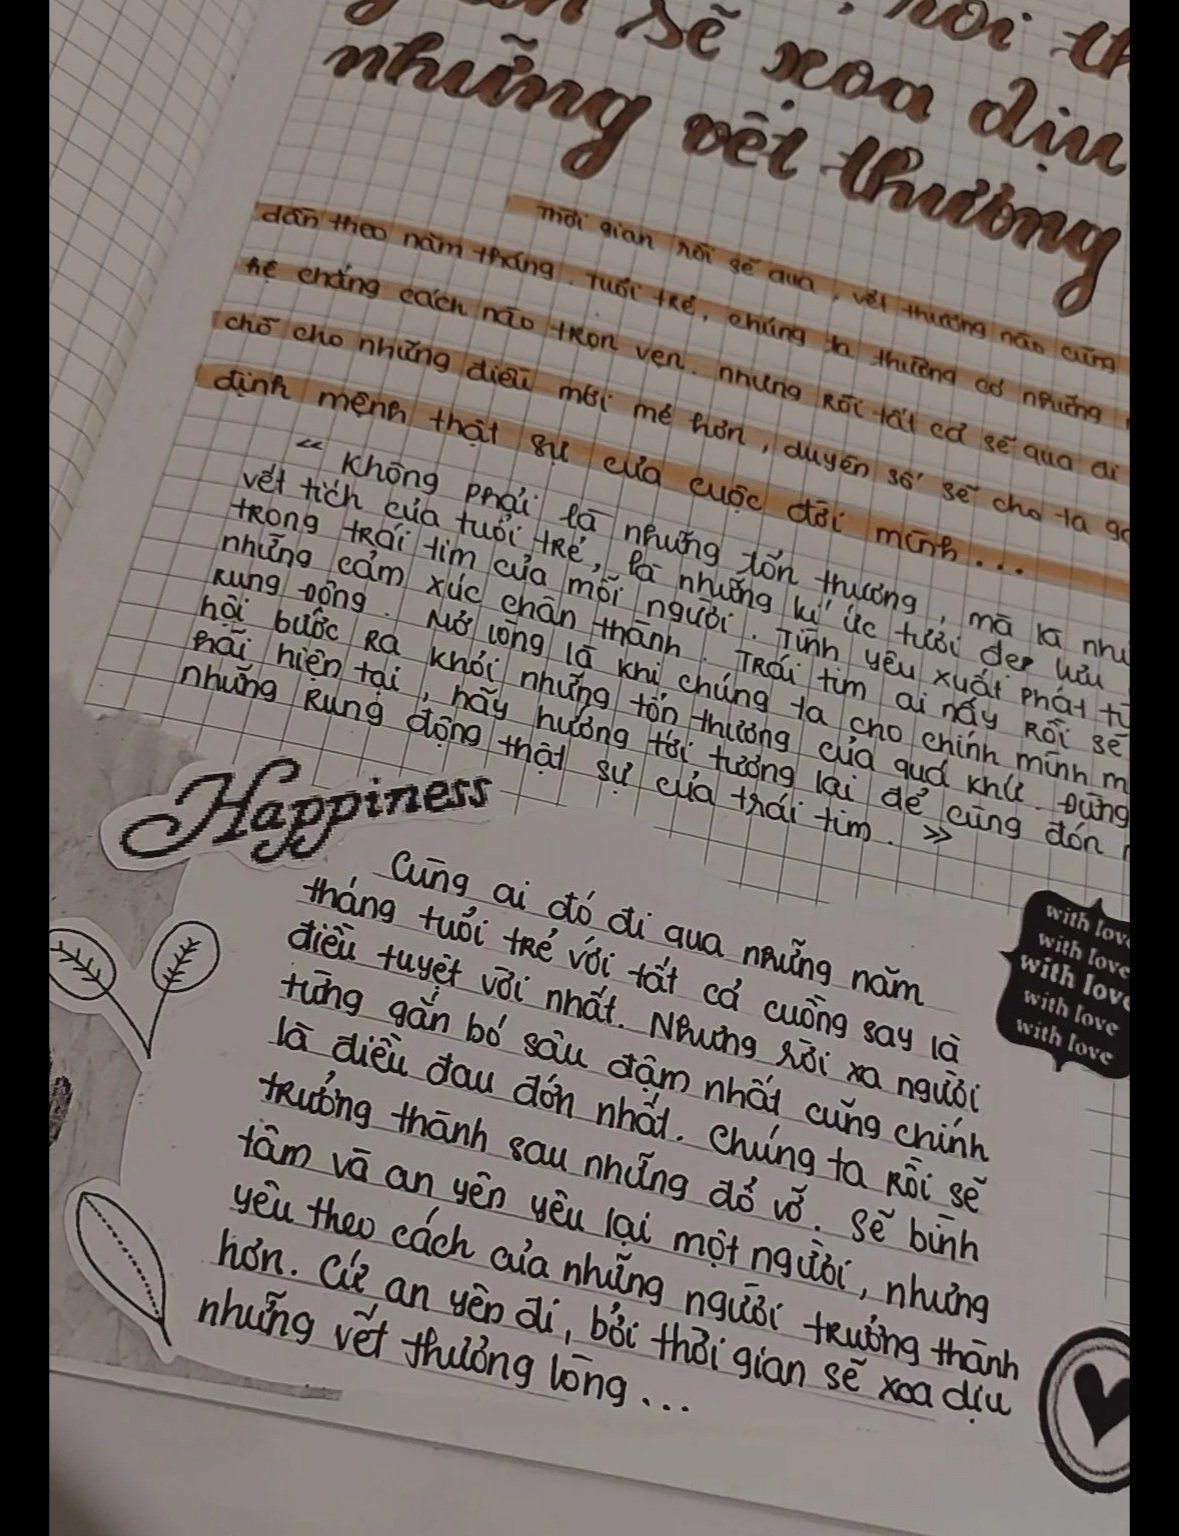 sẽ xoa dịu
những vết thương
Thời gian rồi sẽ qua, vết thương nào cũng
dần theo năm tháng. Tuổi trẻ, chúng ta thường có những
hề chẳng cách nào trọn vẹn. Nhưng rồi tất cả sẽ qua đi
chỗ cho những điều mới mẻ hơn, duyên số sẽ cho ta
định mệnh thật sự của cuộc đời mình...
“ Không phải là những tổn thương, mà là
vết tích của tuổi trẻ, là những kí ức tươi đẹp lưu
trong trái tim của mỗi người. Tình yêu xuất phát
những cảm xúc chân thành. Trái tim ai nấy rồi sẽ
rung động. Mở lòng là khi chúng ta cho chính mình
hội bước ra khỏi những tổn thương của quá khứ. Đừng
hãi hiện tại, hãy hướng tới tương lai để cùng đón
những rung động thật sự của trái tim. »
Happiness
Cùng ai đó đi qua những năm
tháng tuổi trẻ với tất cả cuồng say là
điều tuyệt vời nhất. Nhưng rời xa người
từng gắn bó sâu đậm nhất cũng chính
là điều đau đớn nhất. Chúng ta rồi sẽ
trưởng thành sau những đổ vỡ. Sẽ bình
tâm và an yên yêu lại một người, nhưng
yêu theo cách của những người trưởng thành
hơn. Cứ an yên đi, bởi thời gian sẽ xoa dịu
những vết thương lòng...
with love
with love
with love
with love
with love